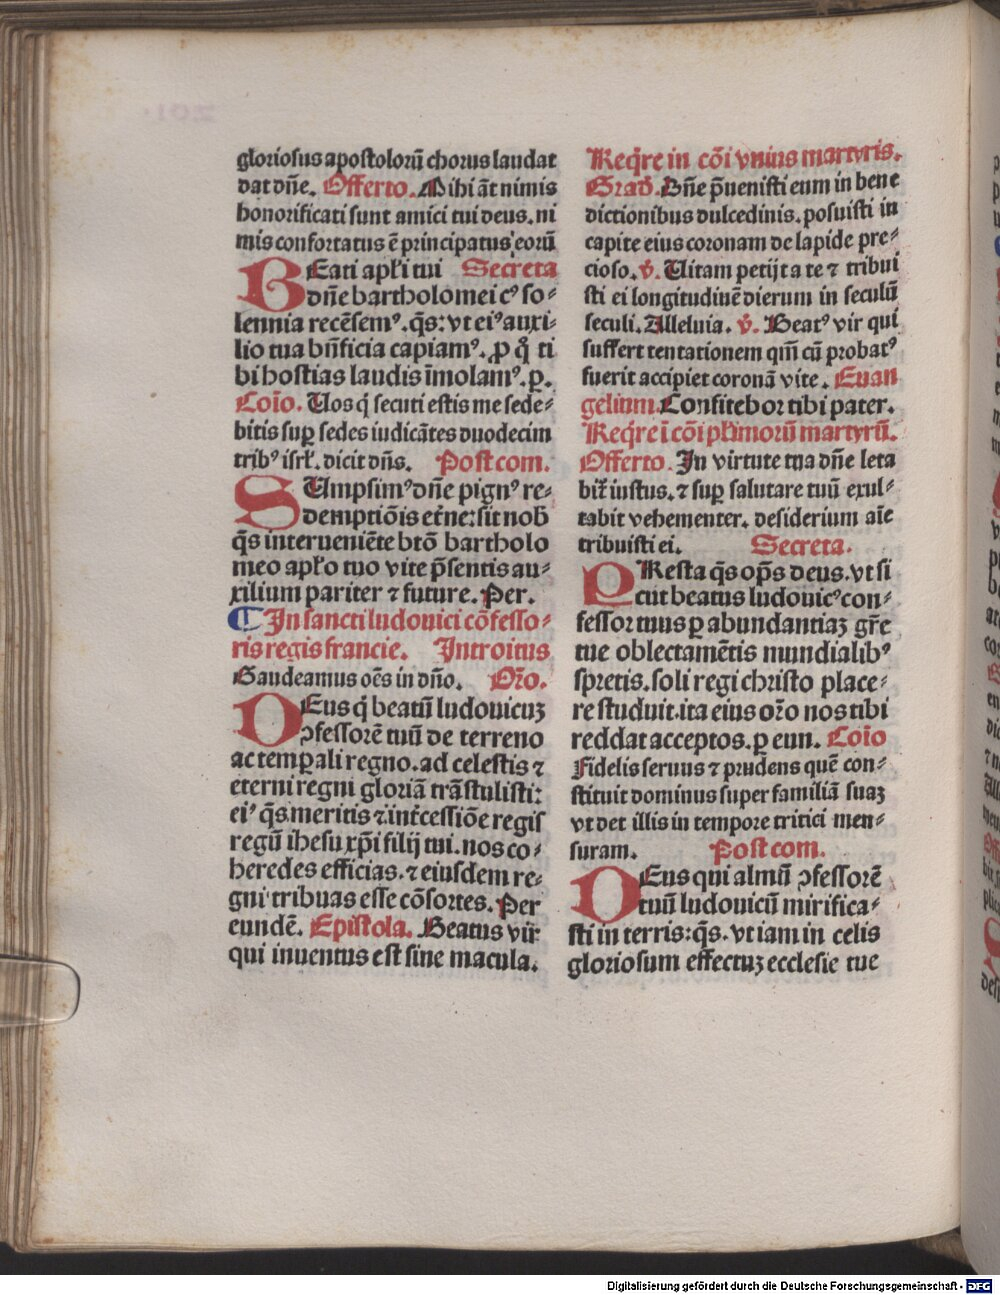 gloriosus apostolorū chorus laudat
dat dn̄e. Offerto. Mihi āt nimis
honorificati sunt amici tui deus. ni
mis confortatus ē principatus eorū
BEati apl̄i tui Secreta
dn̄e bartholomei cꝰ so⸗
lennia recēsemꝰ. q̄s: vt eiꝰ auxi⸗
lio tua bn̄ficia capiamꝰ. ꝓ q̄ ti
bi hostias laudis īmolamꝰ. p.
Coīo. Uos q̄ secuti estis me sede⸗
bitis suꝑ sedes iudicātes duodecim
tribꝰ isrl̄. dicit dn̄s. Postcom.
SUmpsimꝰ dn̄e pignꝰ re⸗
demptiōis et̄ne: sit nob̄
q̄s interueniēte btō bartholo
meo apl̄o tuo vite p̄sentis au⸗
xilium pariter ⁊ future. Per.
¶ In sancti ludouici cōfesso⸗
ris regis francie. Introitus
Gaudeamus oēs in dn̄o. Or̄o.
DEus q̄ beatū ludouicuꝫ
ꝯfessorē tuū de terreno
ac temꝑali regno. ad celestis ⁊
eterni regni gloriā trāstulisti:
eiꝰ q̄s meritis ⁊ int̄cessiōe regis
regū ihesu xp̄i filij tui. nos co⸗
heredes efficias. ⁊ eiusdem re⸗
gni tribuas esse cōsortes. Per
eundē. Epistola. Beatus vir
qui inuentus est sine macula.
Reqr̄e in cōi vnius martyris.
Grad̄. Dn̄e p̄uenisti eum in bene
dictionibus dulcedinis. posuisti in
capite eius coronam de lapide pre⸗
cioso. v̄. Uitam petijt a te ⁊ tribui
sti ei longitudinē dierum in seculū
seculi. Alleluia. v̄. Beatꝰ vir qui
suffert tentationem qm̄ cū probatꝰ
fuerit accipiet coronā vite. Euan
gelium. Confitebor tibi pater.
Reqr̄e ī cōi pl̄imorū martyrū.
Offerto. In virtute tua dn̄e leta
bit̄ iustus. ⁊ suꝑ salutare tuū exul⸗
tabit vehementer. desiderium aīe
tribuisti ei. Secreta.
PResta q̄s op̄s deus. vt si
cut beatus ludouicꝰ con⸗
fessor tuus ꝑ abundantiaꝫ gr̄e
tue oblectamētis mundialibꝰ
spretis. soli regi christo place⸗
re studuit. ita eius or̄o nos tibi
reddat acceptos. ꝑ eun. Coīo
Fidelis seruus ⁊ prudens quē con⸗
stituit dominus super familiā suaꝫ
vt det illis in tempore tritici men⸗
suram. Postcom.
DEus qui almū ꝯfessorē
tuū ludouicū mirifica⸗
sti in terris: q̄s. vt iam in celis
gloriosum effectuꝫ ecclesie tue
Digitalisierung gefördert durch die Deutsche Forschungsgemeinschaft - DFG